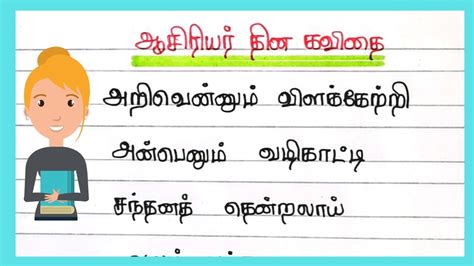 ஆசிரியர் தின கவிதை
அறிவென்னும் விளக்கேற்றி
அன்பெனும் வழிகாட்டி
சந்தனத் தென்றலாய்